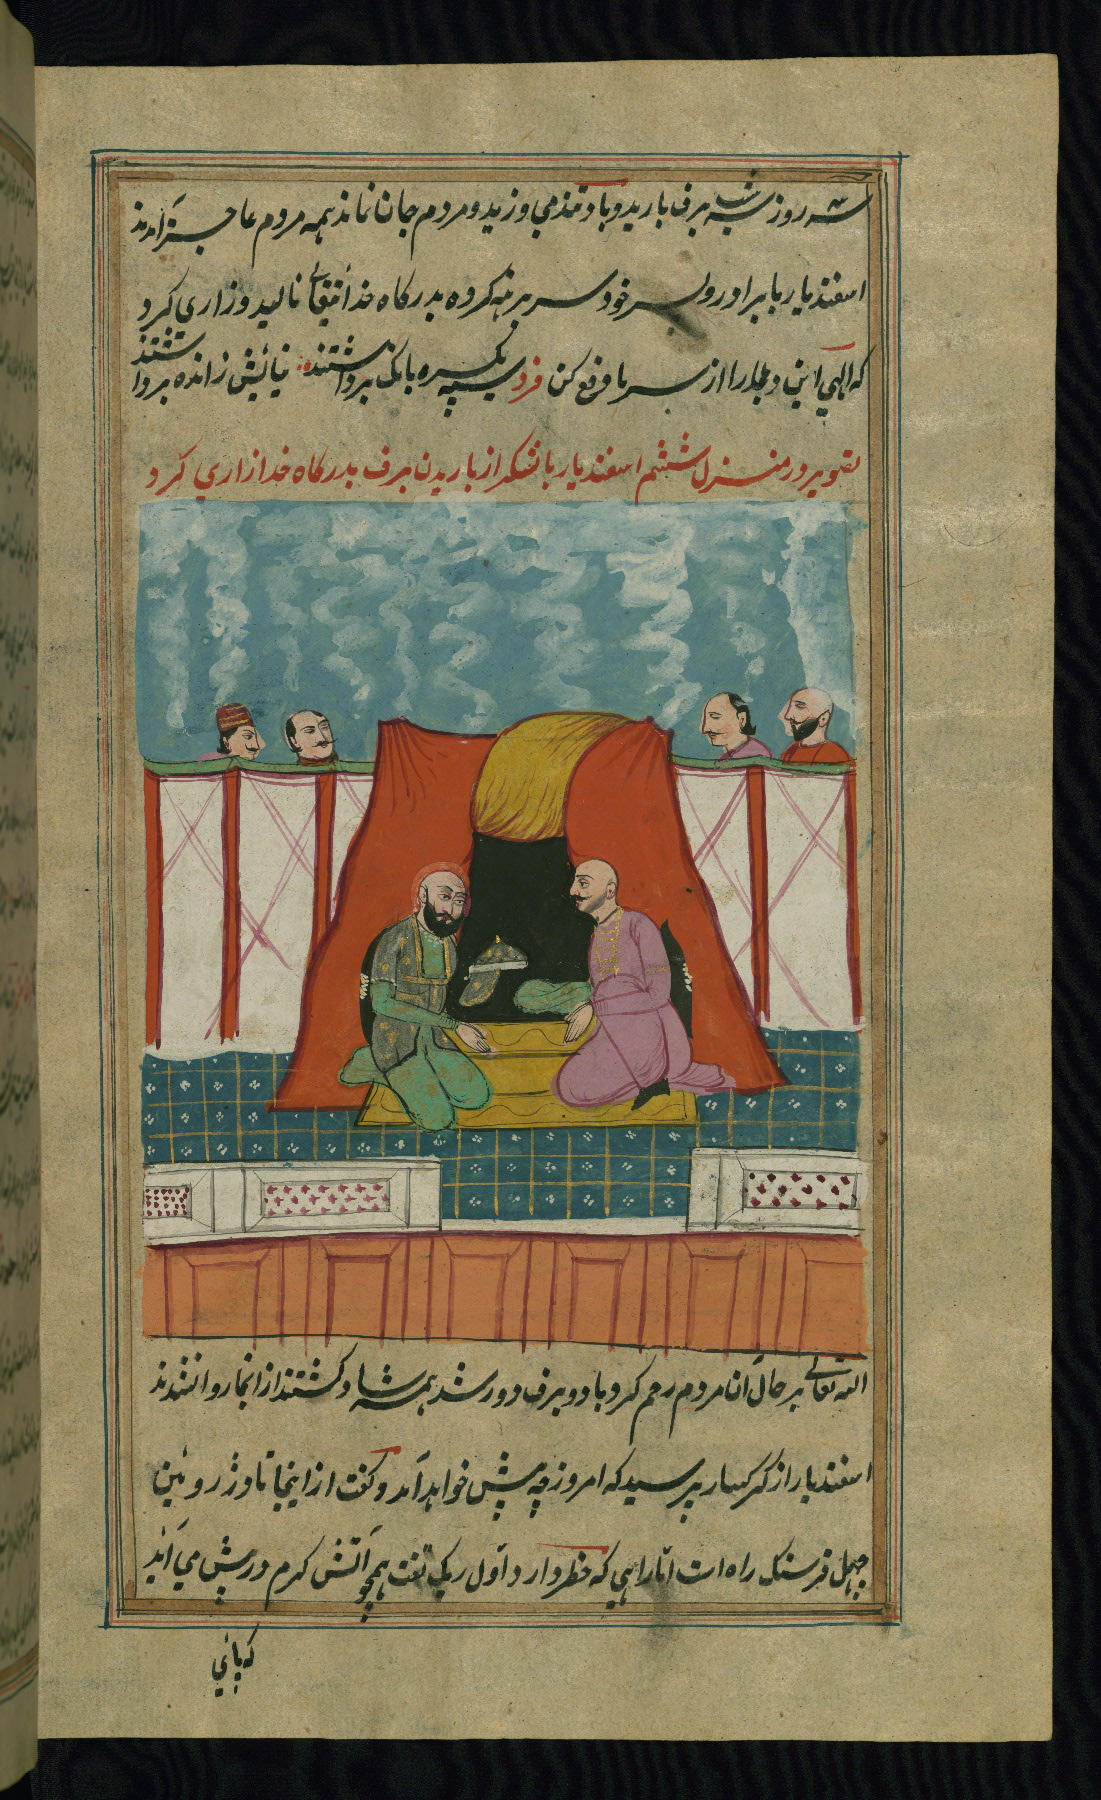 سه روز شب سه برف بارید و باد تند می وزید و مردم جان نماند همه مردم عاجز آمدند
اسفندیار با برادر و پسر خود سر برهنه کرده بدرگاه خدائتعالی نالید و زاری کرد
که الهی این و بلا را از سر ما دفع کن فرد سپه یکسره بانگ برداشتند نیایش زانده برداشتند
تصویر در منزل ششم اسفندیار با لشکر از باریدن برف بدرگاه خدا زاری کرد
الله تعالی بر حال آن مردم رحم کرد باد و برف دور شد همه شاد گشتند از انجا روانه شدند
اسفندیار از گرگسار پرسید که امروز چه پیش خواهد آمد و گفت از اینجا تا دژ روئین
چهل فرسنگ راه است اما راهی که خطر دارد اول ریگ تفت همچو آتش گرم در پیش می آید
که بائی